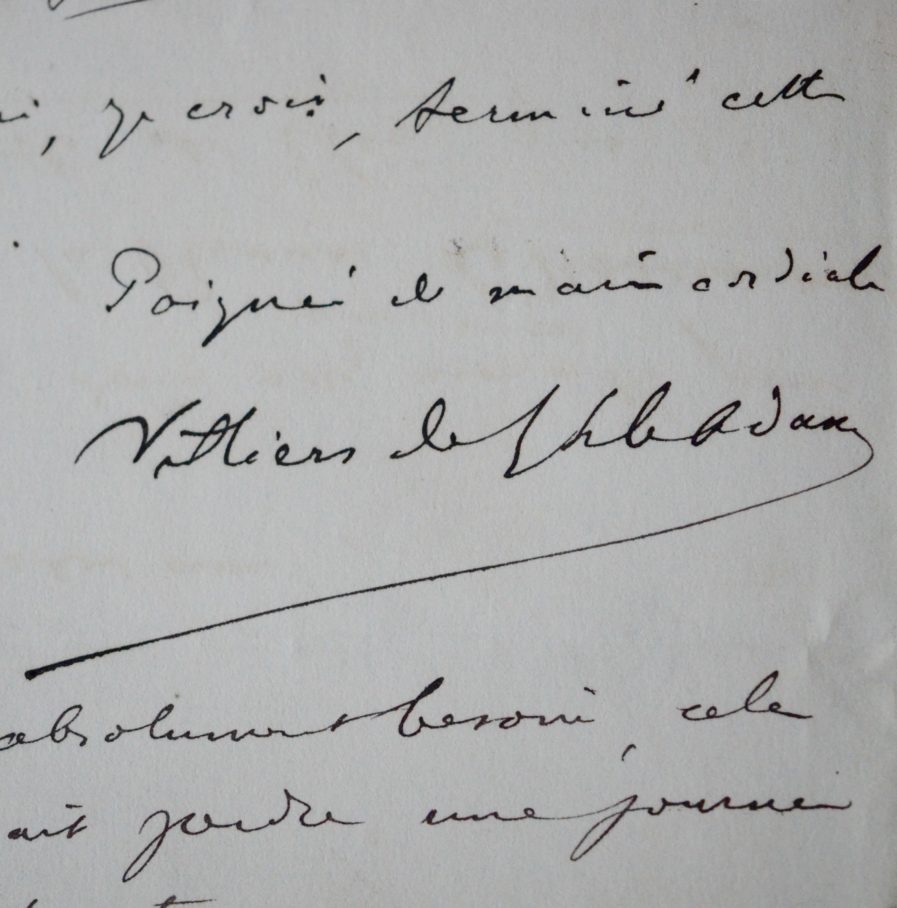 , je crois, terminé cette
Poignée de main cordiale
Villiers de l'Isle Adam
absolument besoin, cela
ait perdre une journée